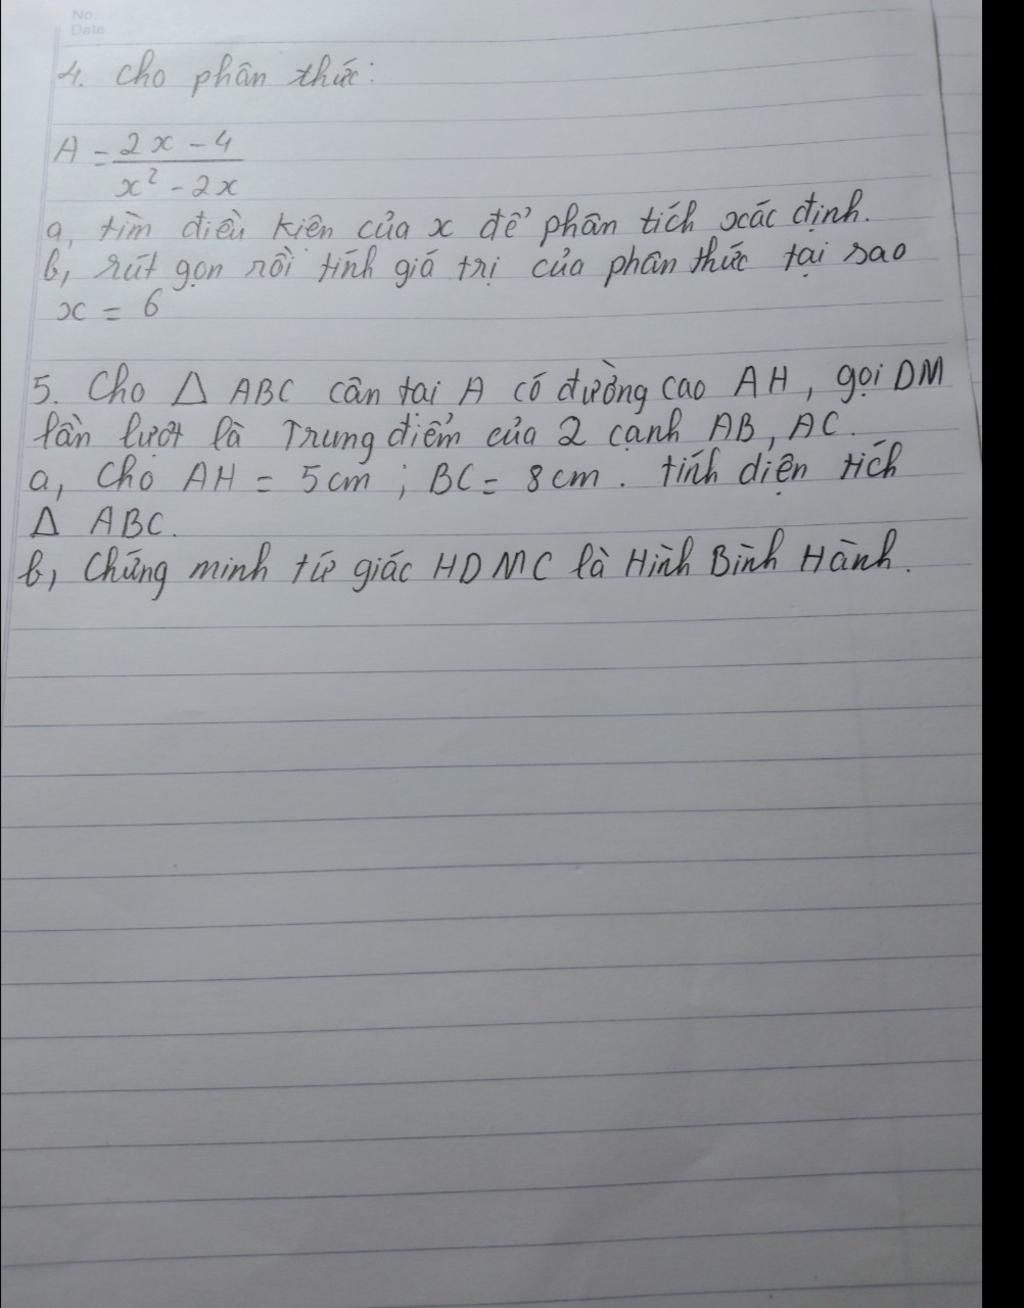 No.
Date
4. Cho phân thức:
A = \frac{2x - 4}{x² - 2x}
a, tìm điều kiên của x để phân tích xác định.
b, rút gọn rồi tính giá trị của phân thức tại sao
x = 6
5. Cho Δ ABC cân tai A có đường cao AH, gọi DM
lần lượt là Trung điểm của 2 cạnh AB, AC.
a, Cho AH = 5cm ; BC = 8cm. tính diện tích
Δ ABC.
b, Chứng minh tứ giác HDMC là Hình Bình Hành.